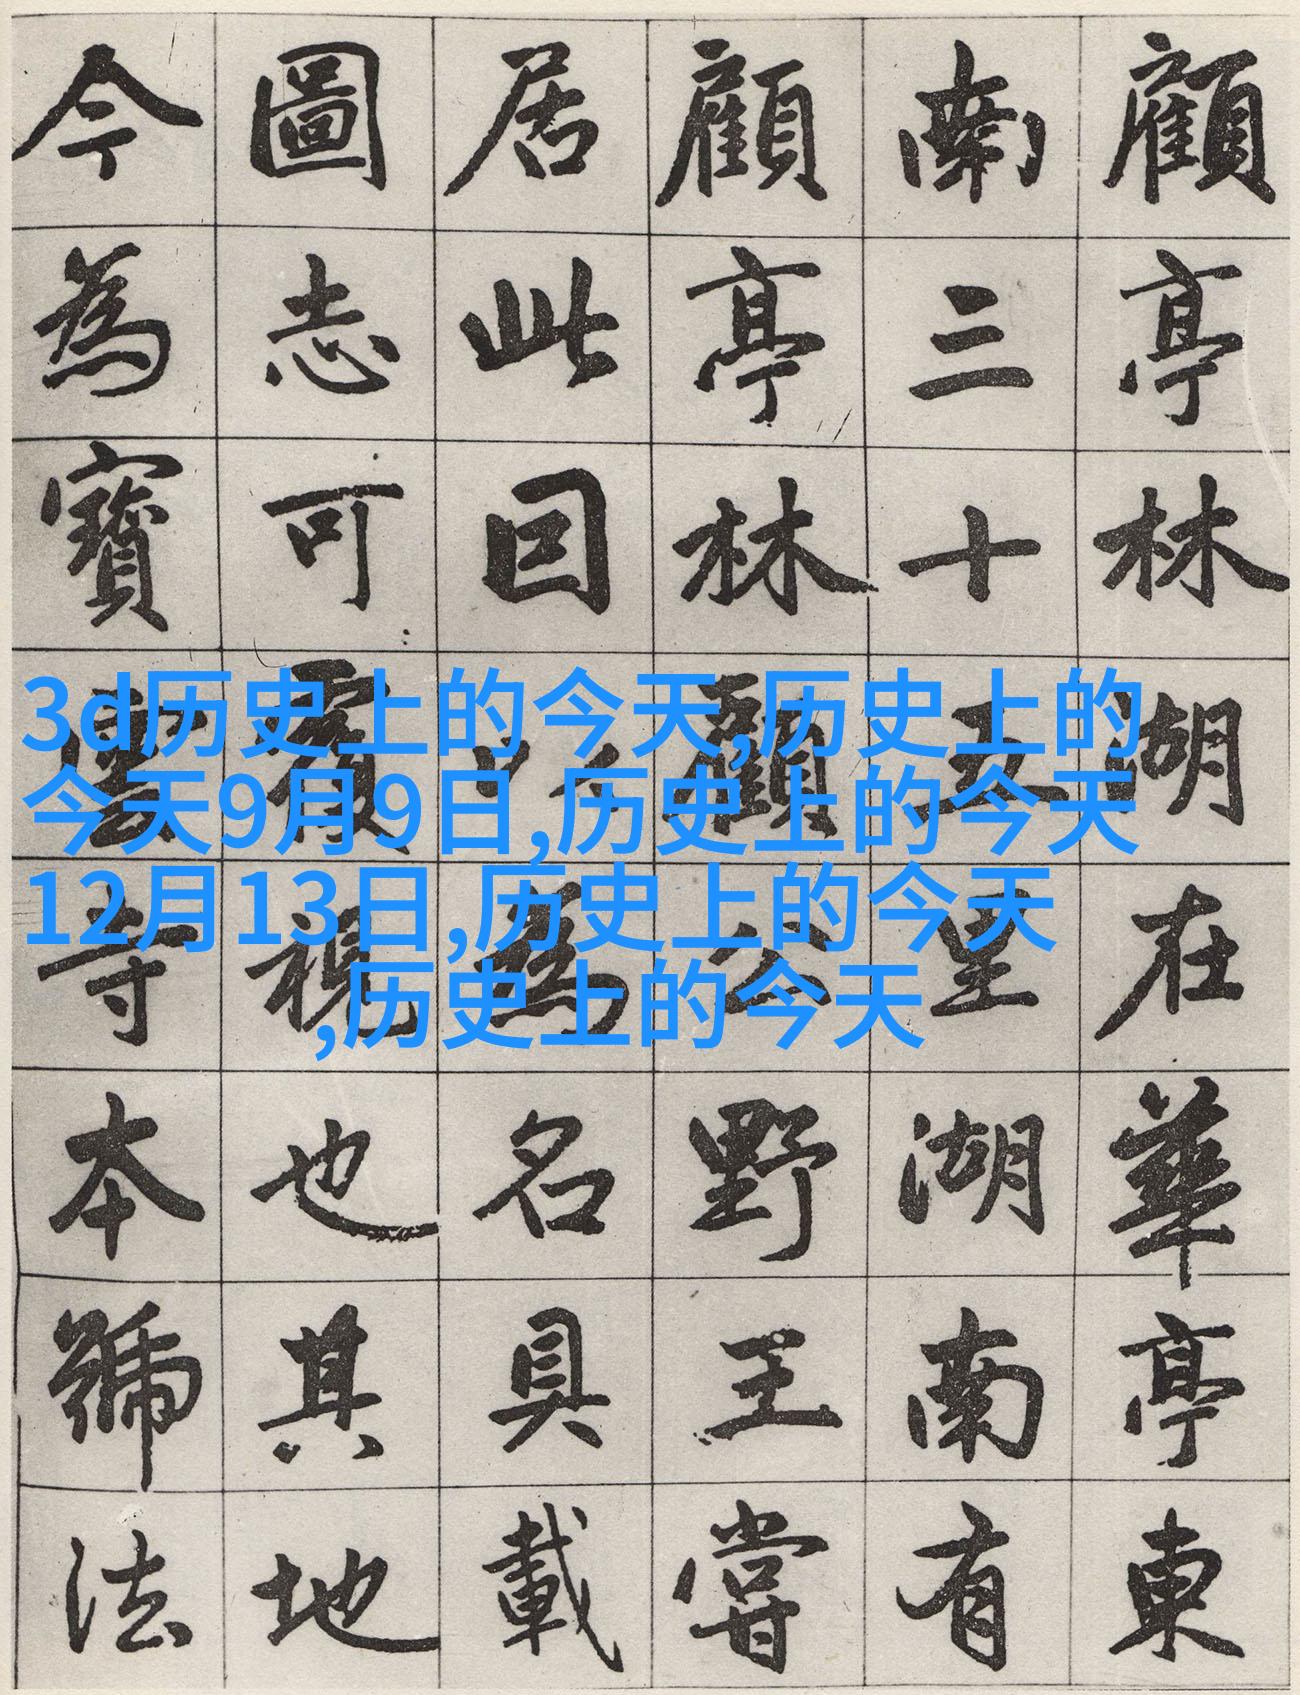 顧亭林湖在華亭東
南三十五里湖南有
顧亭林顧公野王嘗
居此囙以為名具載
圖志可覆視也其地
今為寶雲寺本號法
3d历史上的今天,历史上的
今天9月9日,历史上的今天
12月13日,历史上的今天
,历史上的今天